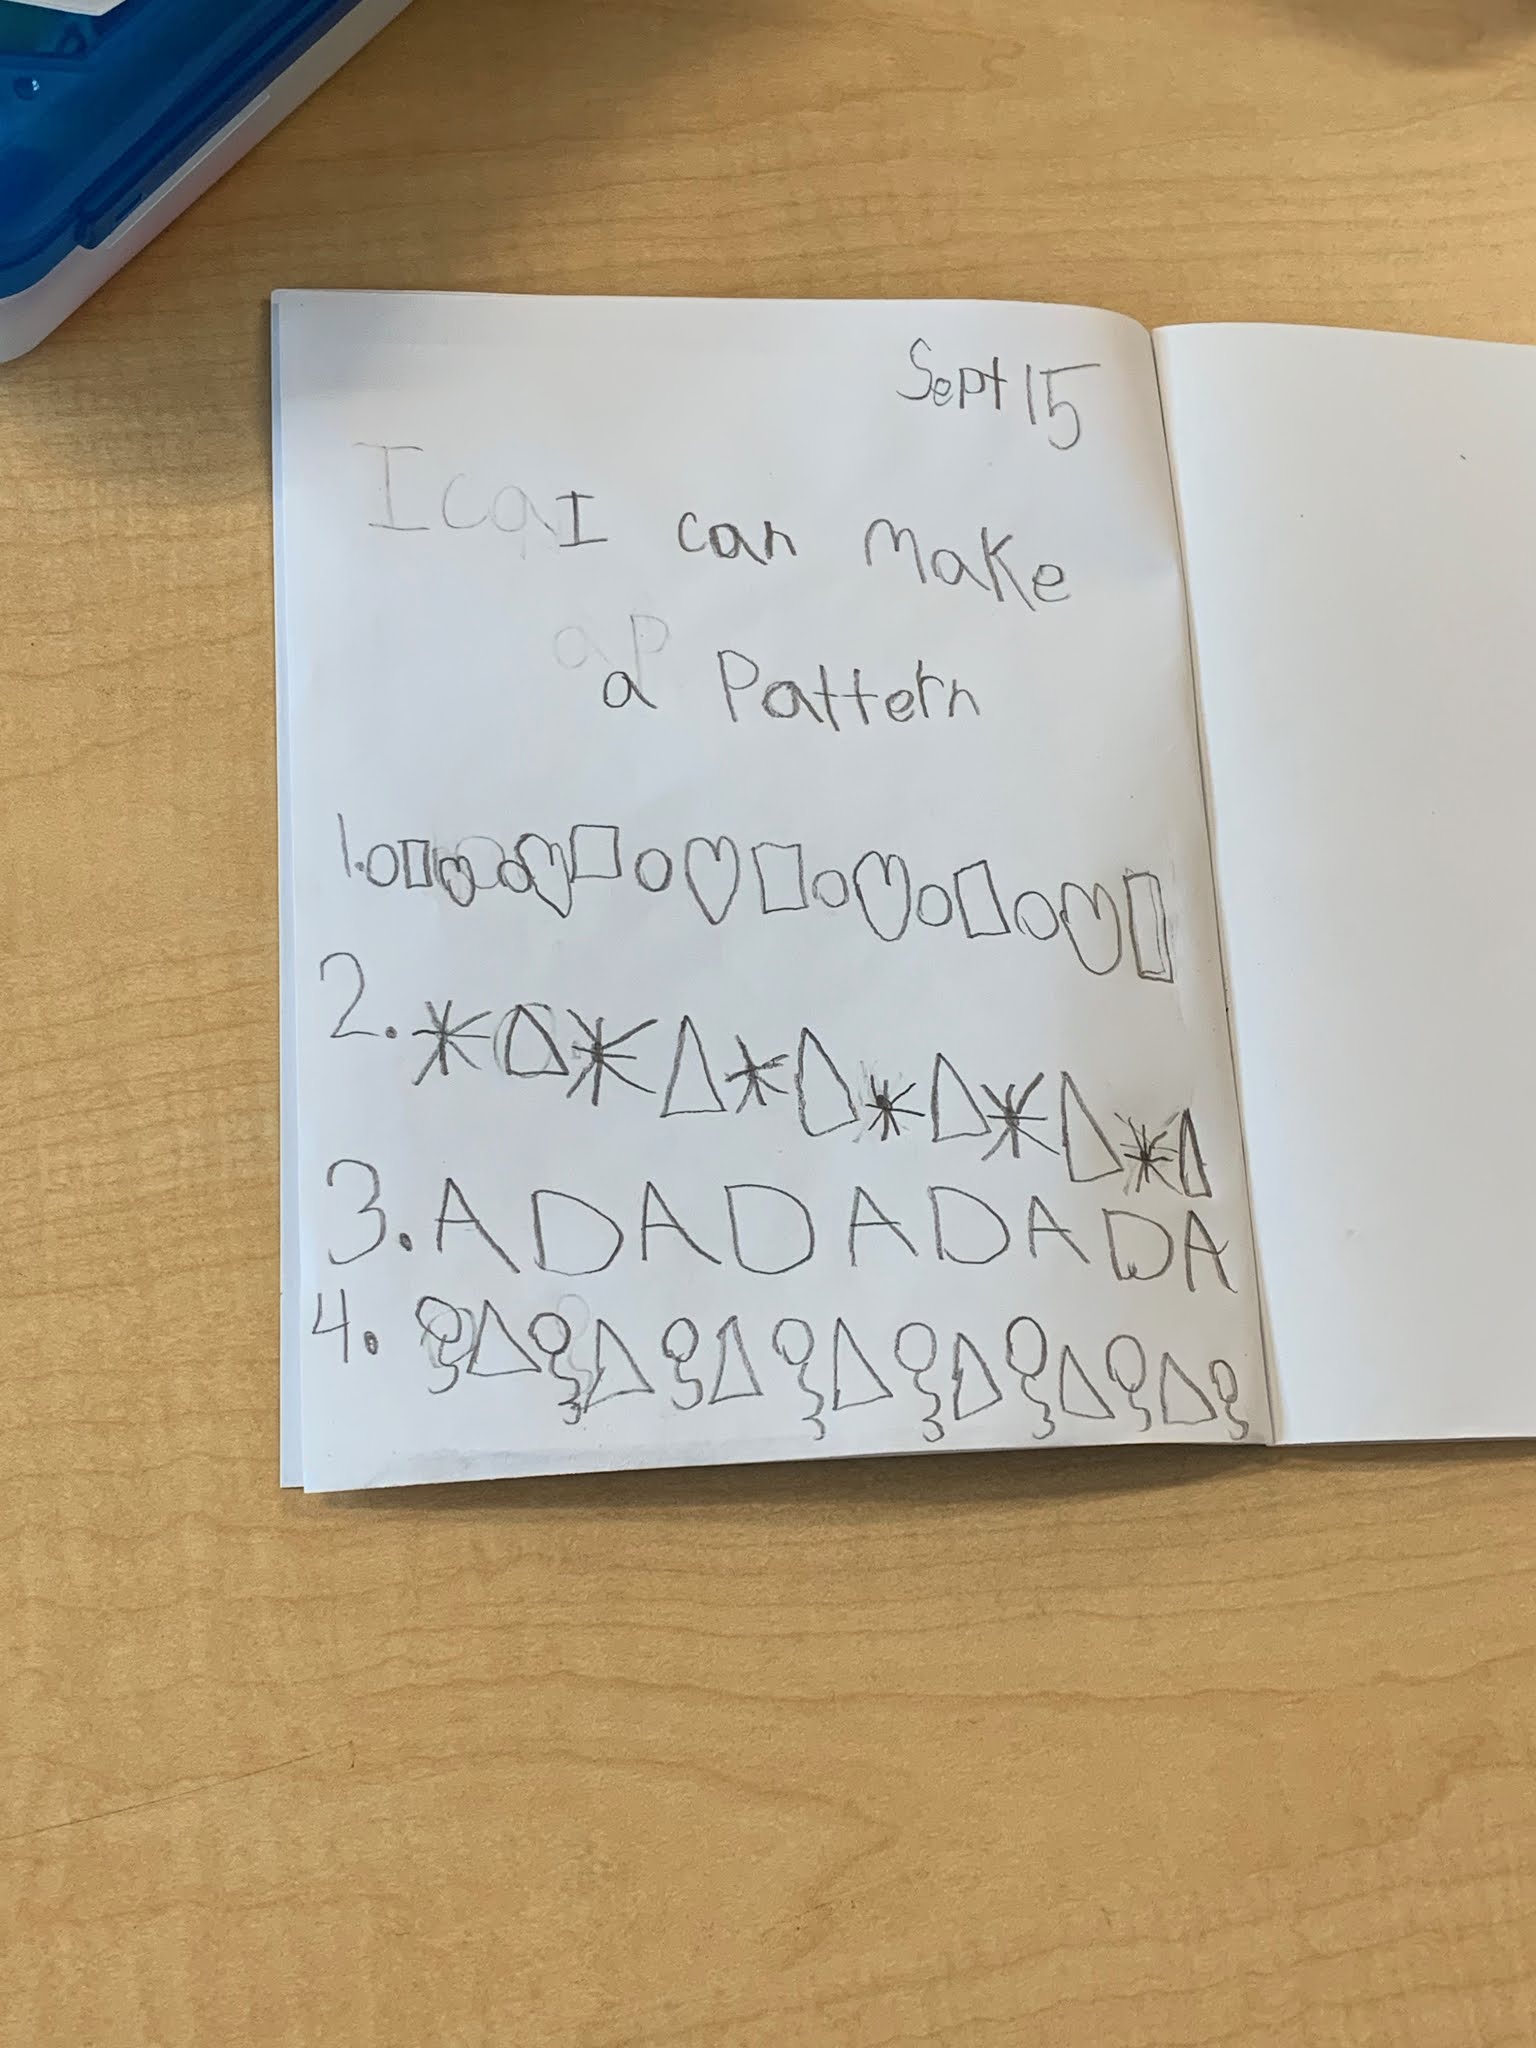 Sept 15
I ca I can make
a p
a Pattern
1.
2.
3. A D A D A D A D A
4.